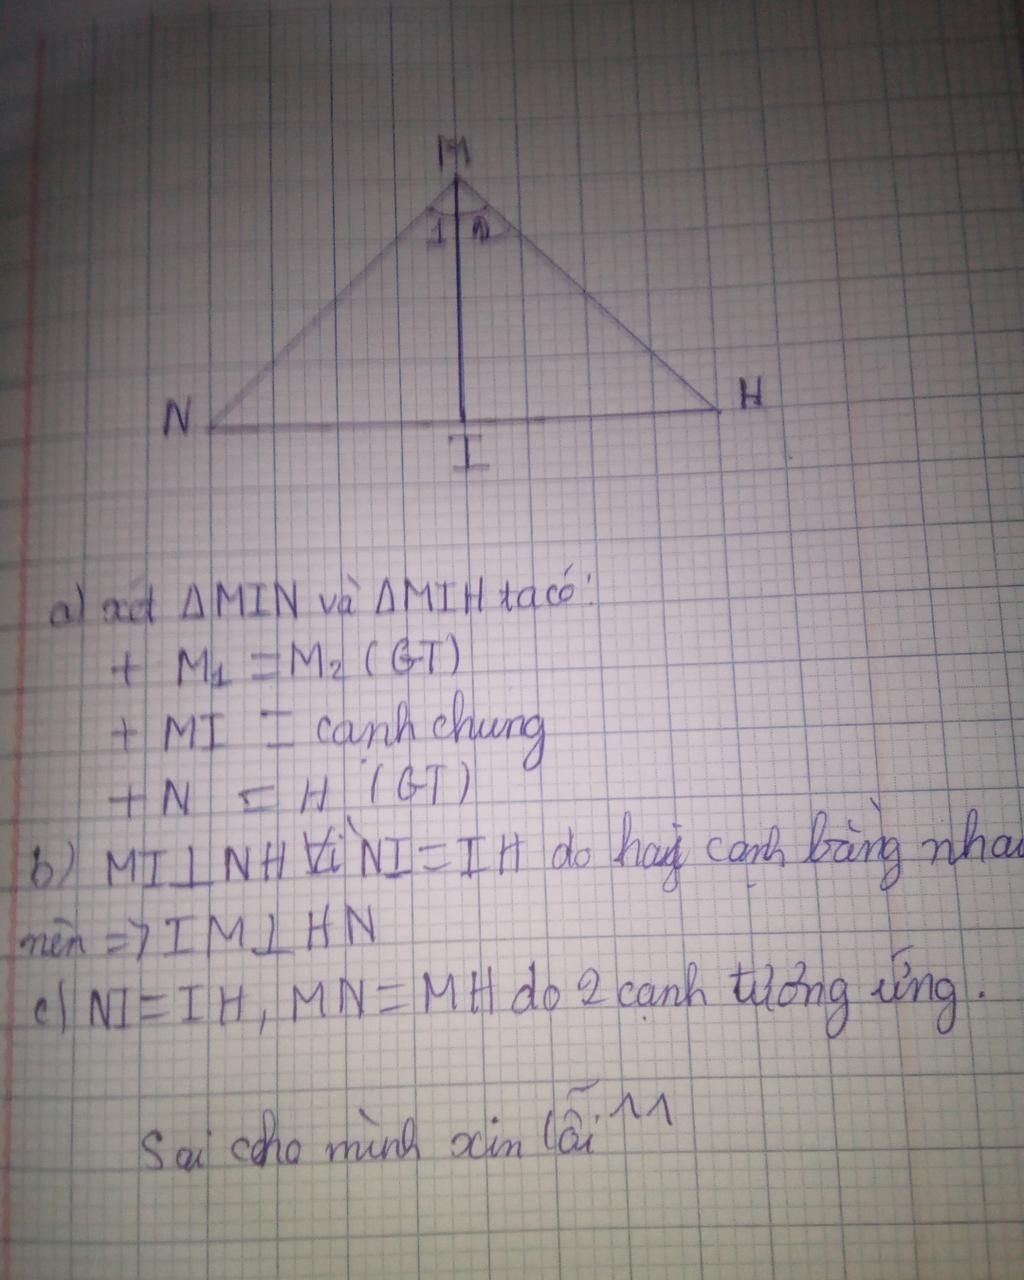 M
1 2
N H
I
a) xét ΔMIN và ΔMIH ta có:
+ M₁ = M₂ (GT)
+ MI = cạnh chung
+ N = H (GT)
b) MI⊥NH Vì NI = IH do hai cạnh bằng nhau
nên => IM⊥HN
c) NI = IH, MN = MH do 2 cạnh tương ứng.
Sai cho mình xin lỗi ^^